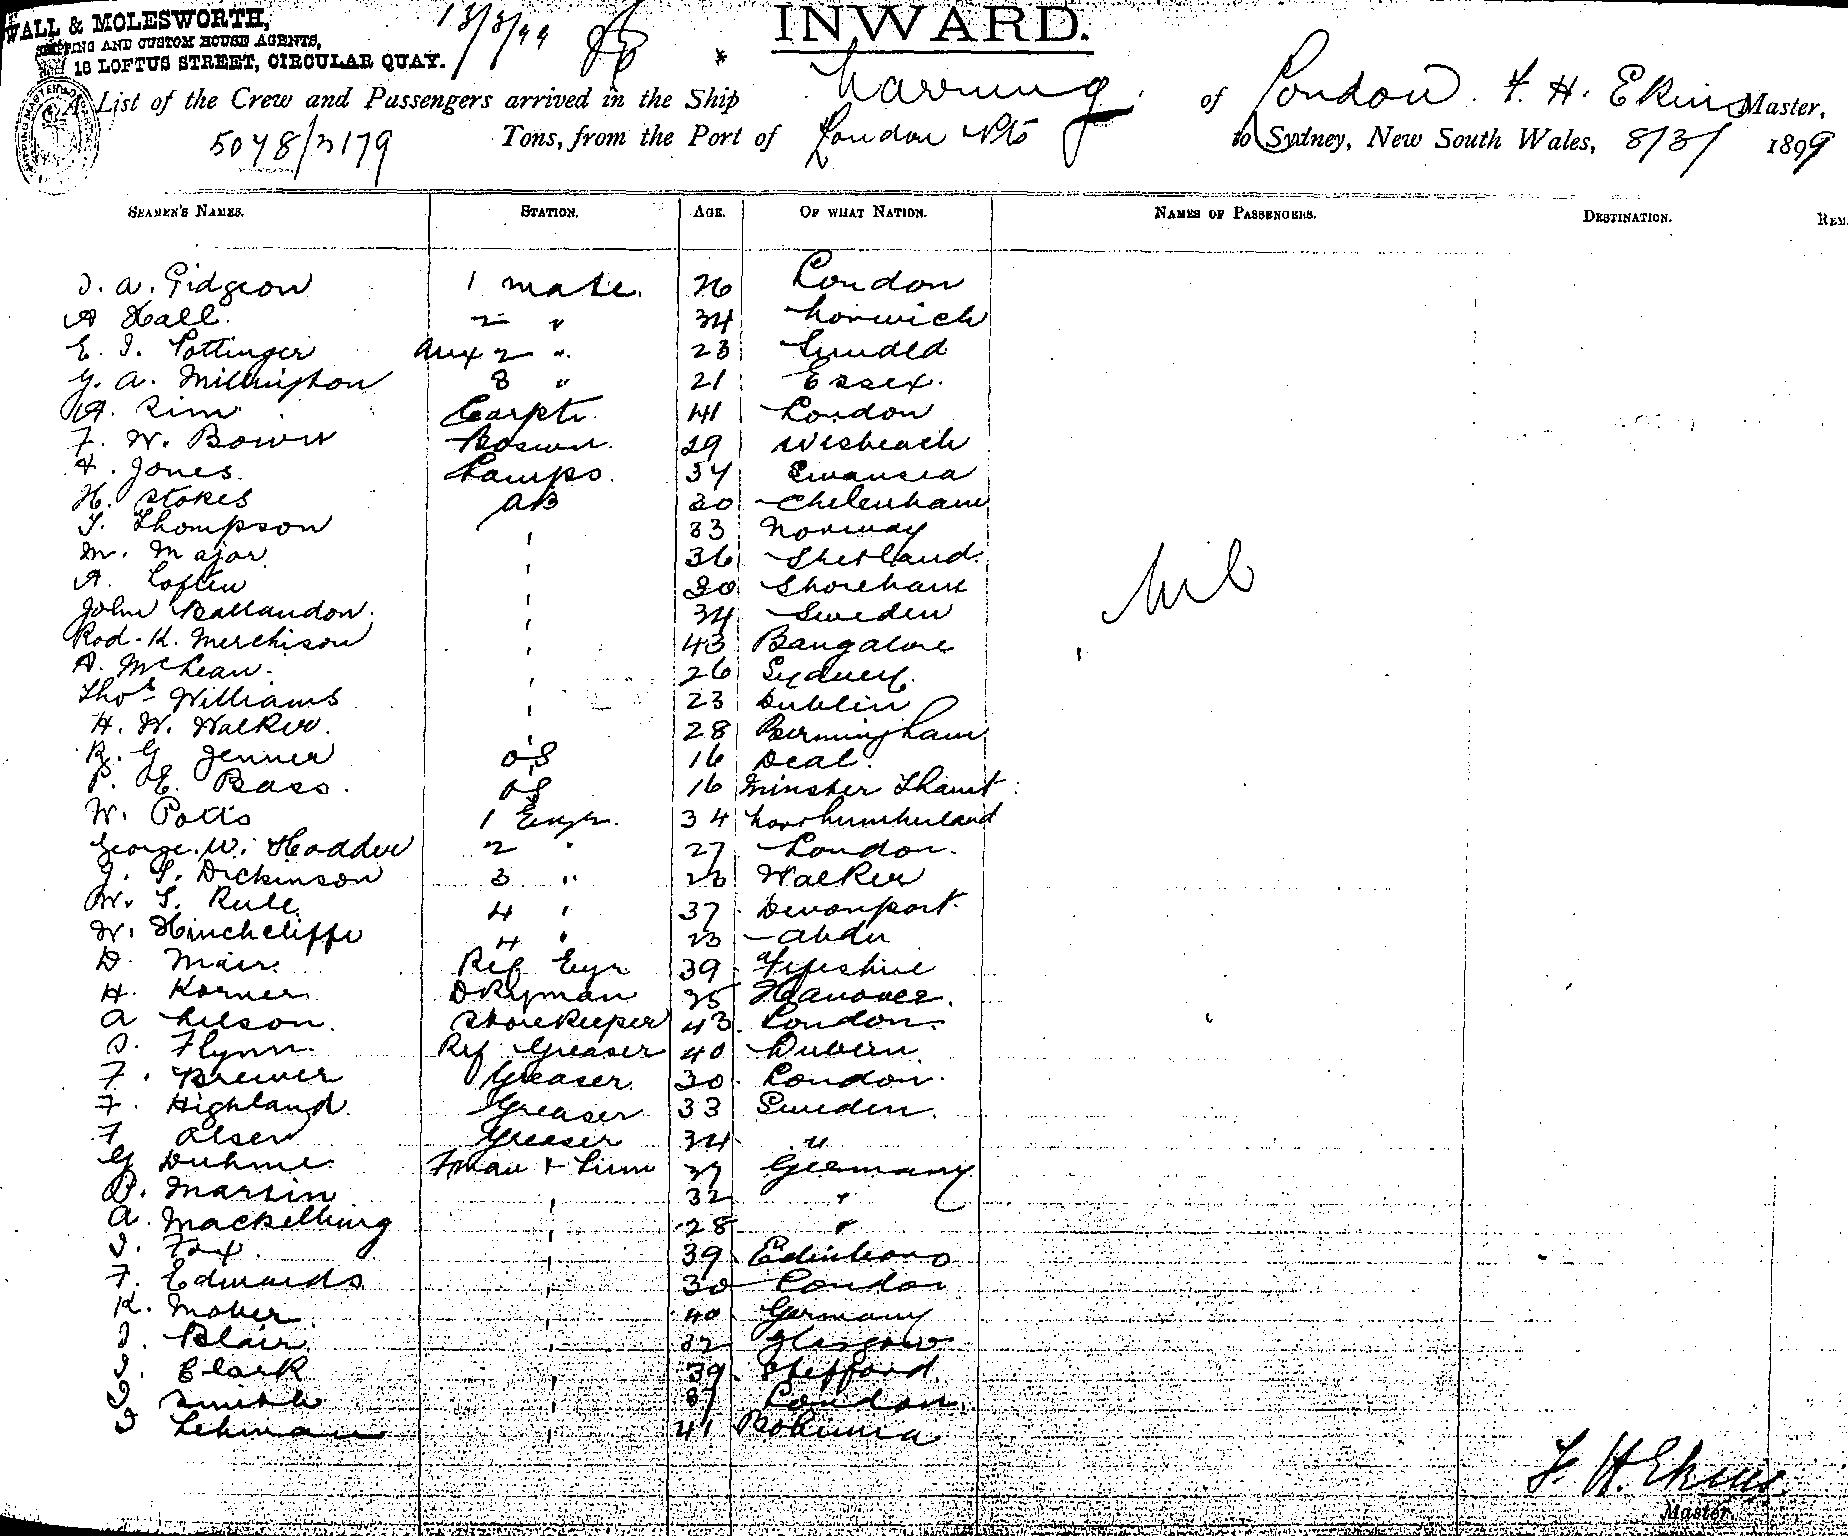 WALL & MOLESWORTH,
SHIPPING AND CUSTOM HOUSE AGENTS,
18 LOFTUS STREET, CIRCULAR QUAY.
13/3/99
INWARD.
A List of the Crew and Passengers arrived in the Ship Narrung of London. F. H. Ekins Master,
5078/3179 Tons, from the Port of London to Sydney, New South Wales, 8/3/ 1899
SEAMEN'S NAMES. STATION. AGE. OF WHAT NATION. NAMES OF PASSENGERS. DESTINATION. REM
J. A. Pidgeon 1 mate. 26 London
A Hall. 2 " 34 Norwich
E. J. Pottinger Aux 2 " 23
G. A. Millington 3 " 21 Essex.
A. Rim Carptr. 41 London
F. W. Bower Boswn. 29 Wisbeach
H. Jones Lamps. 34 Swansea
H. Stokes AB 20 Cheltenham
T. Thompson " 33 Norway
M. Major " 36 Shetland.
A. Loften " 30 Shoreham
Nil
John Ballandon. " 34 Sweden
Rod. K. Merchison " 43 Bangalore
A. McLean. " 26 Sydney.
Thos Williams " 23 Dublin
H. W. Walker. " 28 Birmingham
R. G. Jenner OS 16 Deal.
P. E. Bass. OS 16 Minster Thanet
W. Potts 1 Engr. 34 Northumberland
George. W. Hodder 2 " 27 London.
J. S. Dickinson 3 " 23 Walker
W. S. Rule. 4 " 37 Devonport.
W. Hinchcliffe 4 " 23
D. Mair. Ref Engr 39 Fifeshire
H. Korner. Dkyman 35 Hanover.
A Nelson. Storekeeper 43 London.
J. Flynn. Ref Greaser 40 Dublin.
F. Brewer Greaser. 30 London.
F. Highland. Greaser 33 Sweden.
F Olsen Greaser 34 "
G Duhme. Fman & Trim 37 Germany
B. Martin " 32 "
A. Mackelburg " 28 "
J. Fox. " 39 Edinboro
F. Edwards " 30 London
K. Mober. " 40 Germany
J. Blair. " 32 Glasgow
J. Clark " 39 Stafford.
J Smith " 37 London.
J Lehman " 41 Bohemia
F. H. Ekins.
Master